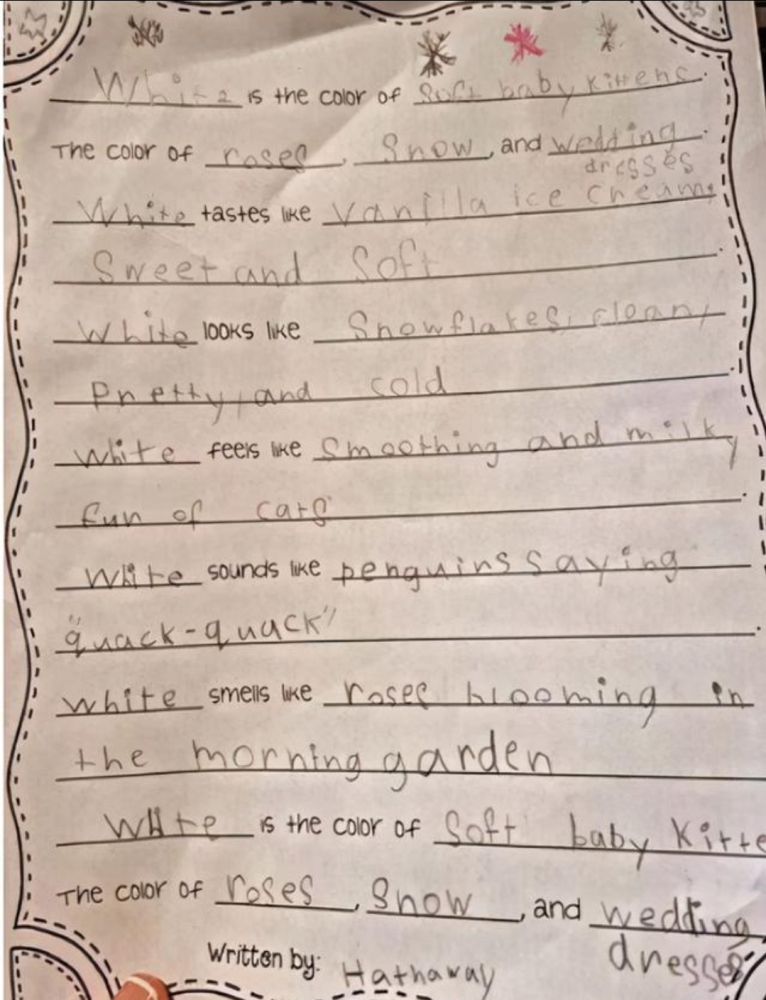 White is the color of soft baby kittens.
The color of roses, Snow, and wedding
dresses.
White tastes like vanilla ice cream,
Sweet and Soft.
White looks like Snowflakes, clean,
Pretty, and cold.
White feels like Smoothing and milky
fun of cats.
White sounds like penguins saying
"quack-quack".
White smells like roses blooming in
the morning garden
White is the color of Soft baby Kitte
The color of roses, Snow, and wedding
dresses
Written by: Hathaway